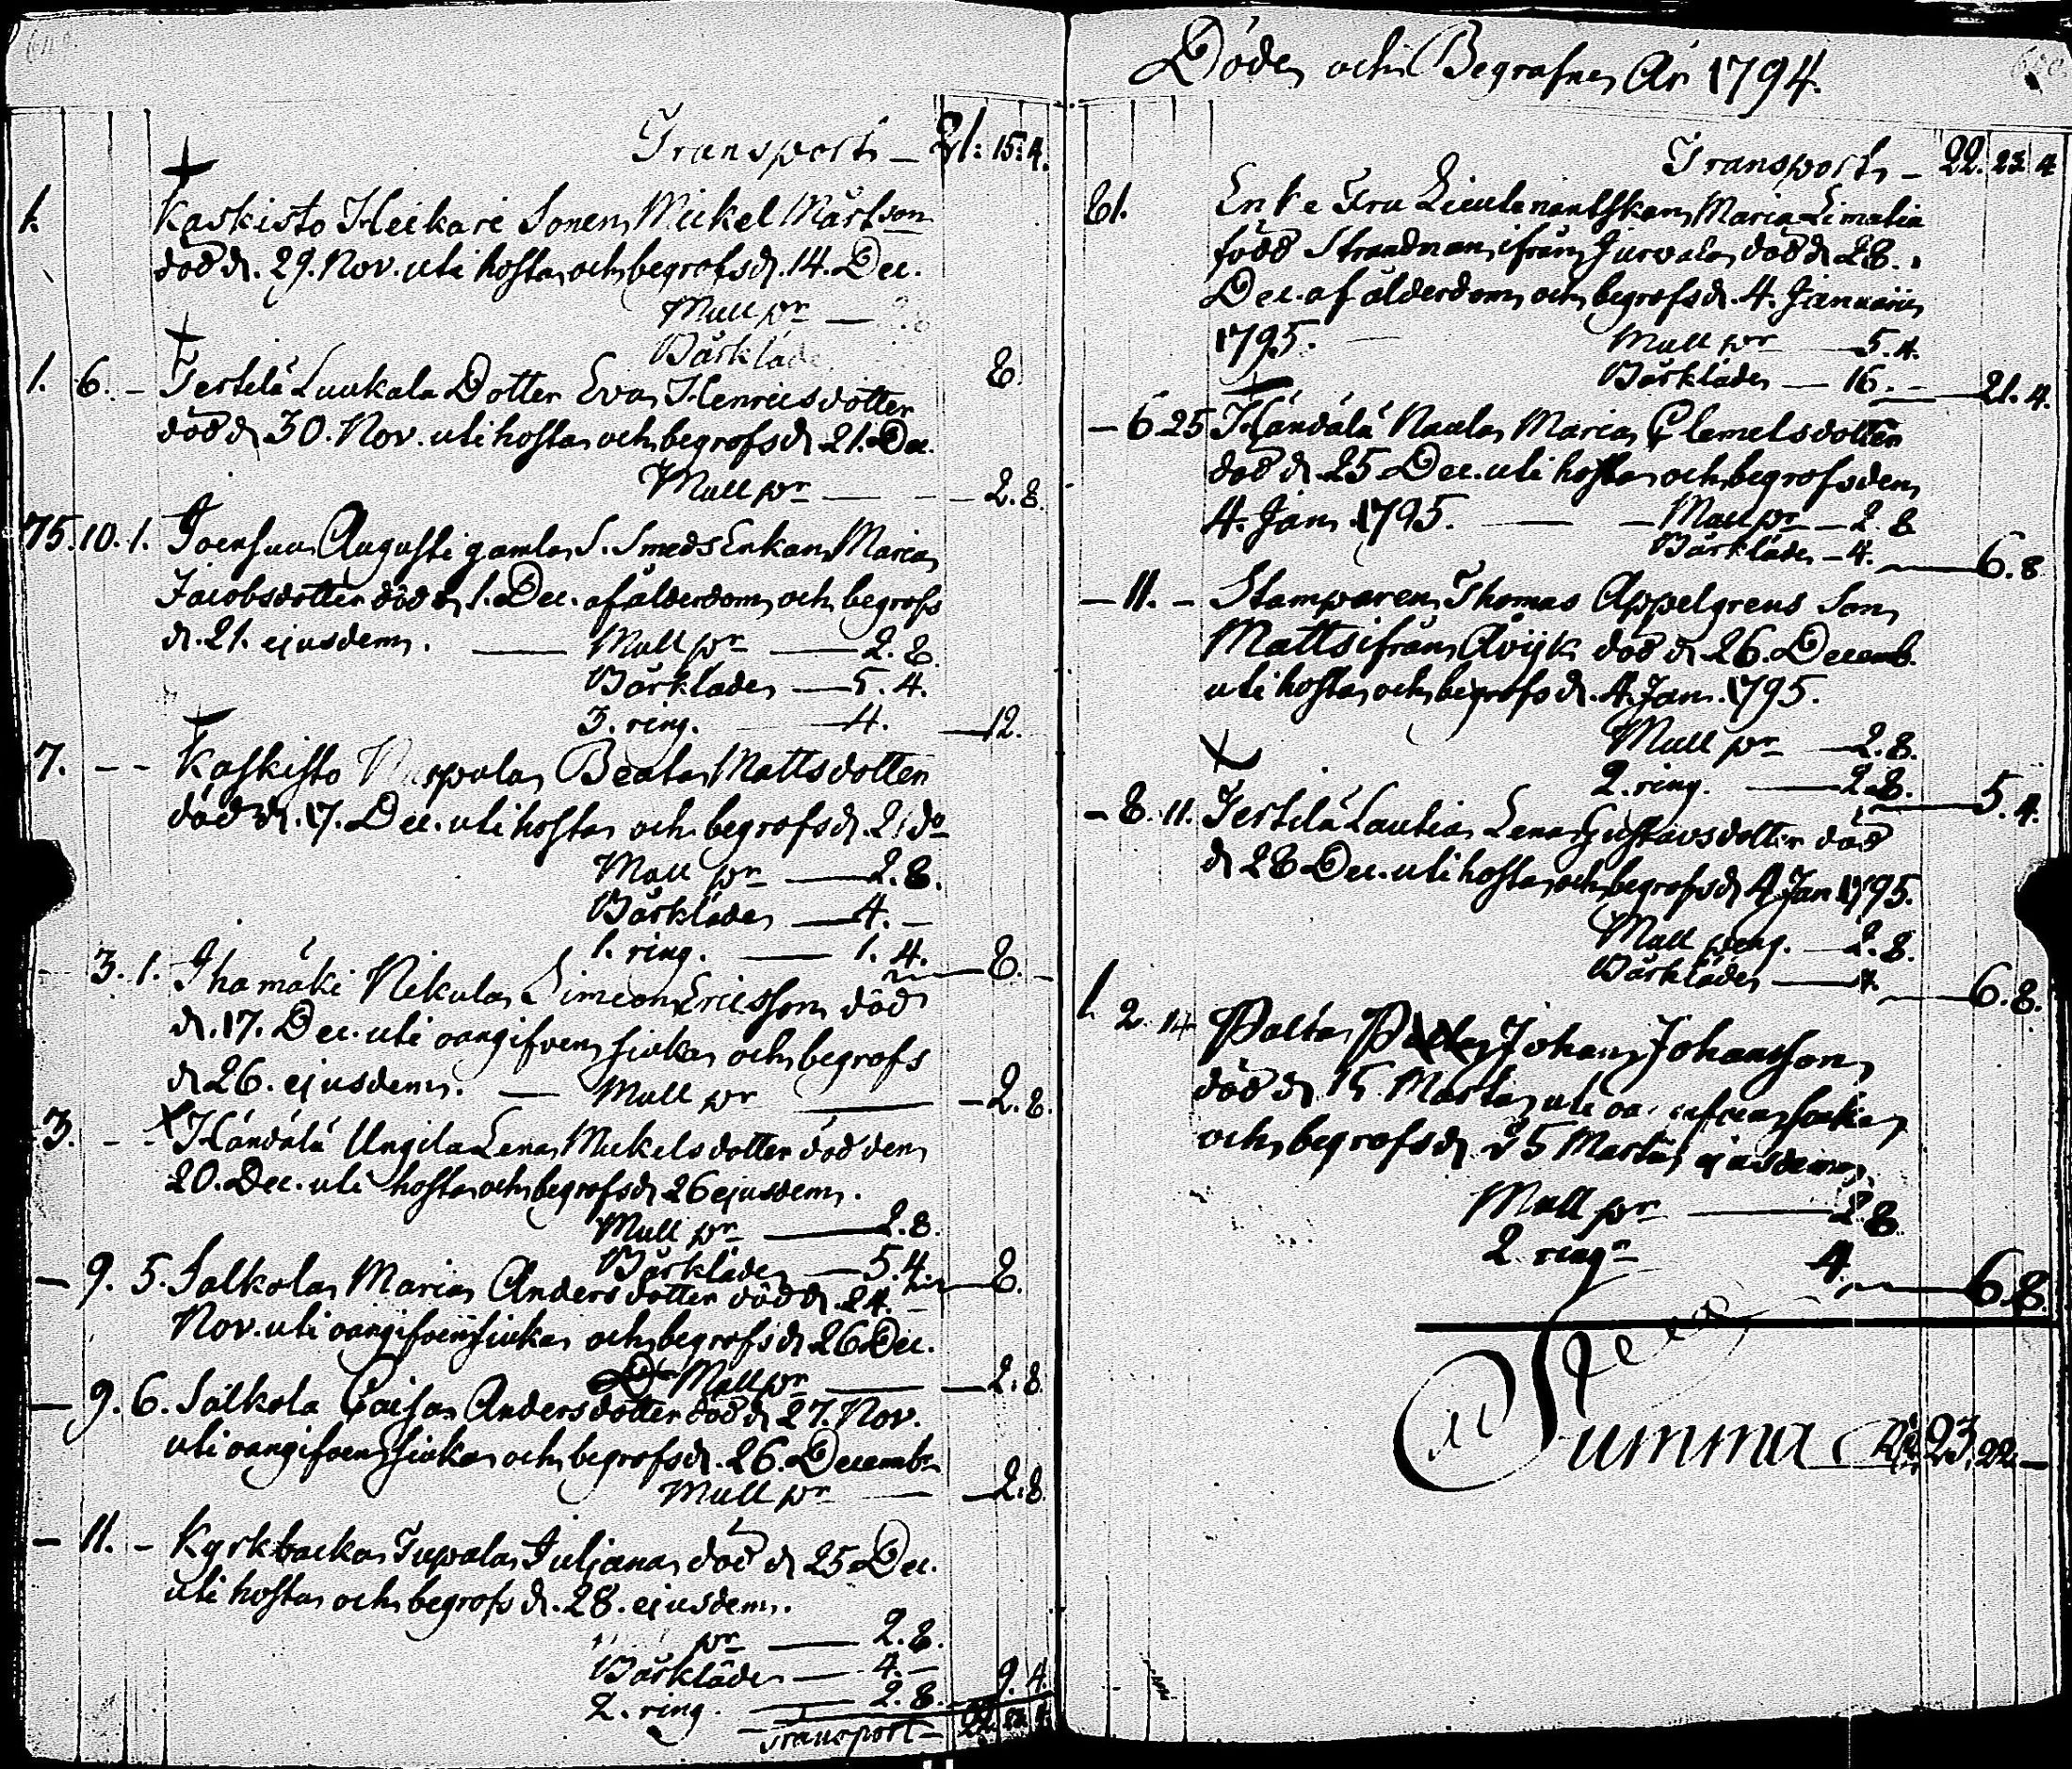 Transport – 21. 15. 4.
1. Kaskisto Heikari Sonen Mickel Märtson
död d. 29. Nov. uti hosta och begrofs d. 14. Dec.
Mull pr —
Bårkläde 8.
1. 6. – Tertilä Luukala Dotter Eva Henricsdotter
död d. 30. Nov. uti hosta och begrofs d. 21. Dec.
Mull pr — – – 2. 8.
75. 10. 1. Joensuu Augusti gamla S. Smeds Enkan Maria
Jacobsdotter död d. 1. Dec. af ålderdom och begrofs
d. 21. ejusdem. — Mull pr — 2. 8.
Bårkläde — 5. 4.
3. ring. — 4. — 12.
7. – – Kaskisto Beata Mattsdotter
död d. 17. Dec. uti hosta och begrofs d. 21 do
Mull pr — 2. 8.
Bårkläde — 4. –
1. ring. — 1. 4. — 8. –
– 3. 1. Ihamäki Nikula Simeon Ericsson död
d. 17. Dec. uti oangifven siuka och begrofs
d. 26. ejusdem. — Mull pr — – 2. 8.
3. – – Händälä Ungila Lena Mickelsdotter död den
20. Dec. uti hosta och begrofs d. 26 ejusdem.
Mull pr — 2. 8.
Bårkläde — 5. 4. — 8.
– 9. 5. Salkola Maria Andersdotter död d. 24.
Nov. uti oangifven siuka och begrofs d. 26 Dec.
Mull pr — – 2. 8.
– 9. 6. Salkola Caisa Andersdotter död d. 27. Nov.
uti oangifven siuka och begrofs d. 26. Decembr
Mull pr — – 2. 8.
– 11. – Kyrkbacka Tupala Juljana död d. 25 Dec.
uti hosta och begrofs d. 28. ejusdem.
pr — 2. 8.
Bårkläde — 4. –
2. ring. — 2. 8. – 9. 4.
Transport – 22.
Döde och Begrafne År 1794.
Transport – 22. 23. 4
81. Enke Fru Lieutenantskan Maria Limatia
född Strandman ifrån Jurvala död d. 28.
Dec. af ålderdom och begrofs d. 4. Januarii
1795. — Mull pr — 5. 4.
Bårkläde — 16. – — 21. 4.
– 6 25 Händälä Naula Maria Clemetsdotter
död d. 25 Dec. uti hosta och begrofs den
4. Jan. 1795. — – Mull pr – 2. 8
Bårkläde – 4. — 6. 8
– 11. – Stamparen Thomas Appelgrens Son
Matts ifrån Åvijk död d. 26. Decemb.
uti hosta och begrofs d. 4. Jan. 1795.
Mull pr – 2. 8.
2. ring. — 2. 8. — 5. 4.
– 8. 11. Tertilä Lautia Lena Gustavsdotter död
d. 28 Dec. uti hosta och begrofs d. 4 Jan 1795.
Mull peng. – 2. 8.
Bårkläde — 4. — 6. 8.
1. 2. 14 Palta Johan Johansson
död d. 15. Martii uti siuka
och begrofs d. 25 Martii ejusdem
Mull pr — 2 8
2 ringr 4. — 6. 8.
Summa Rd 23, 22. –